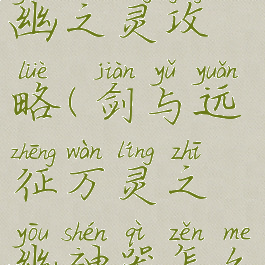 幽之灵攻
lüè jiàn yǔ yuǎn
略(剑与远
zhēng wàn líng zhī
征万灵之
yōu shén qì zěn me
幽神器怎么